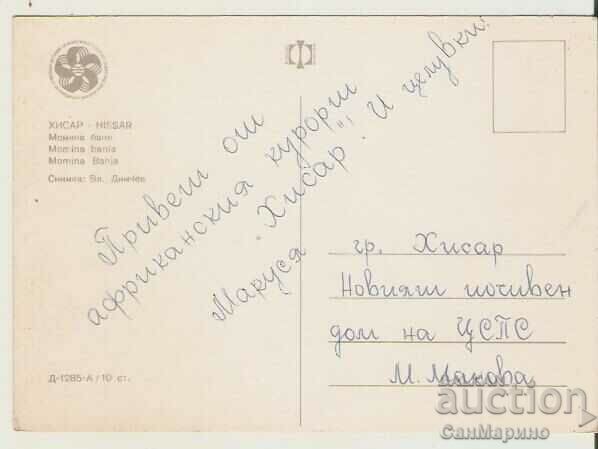 ХИСАР - HISSAR
Момина баня
Momina bania
Momina Banja
Снимка: Вл. Динчев
Привет от
африканския курорт
"Хисар"! И целувки!
Маруся
гр. Хисар
Новият почивен
дом на ЦСПС
М. Макова
Д-1285-А / 10 ст.
auction
СанМарино